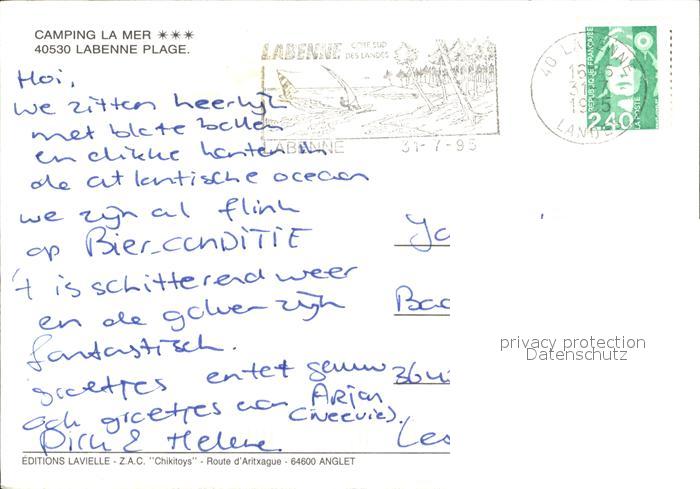 CAMPING LA MER ✶✶✶
40530 LABENNE PLAGE.
LABENNE CÔTE SUD
DES LANDES
LABENNE 31-7-95
40 LABENNE
31
1995
LANDES
REPUBLIQUE FRANÇAISE
LA POSTE
2,40
Hoi,
we zitten heerlijk
met blote
en dikke in
de atlantische oceaan
we zijn al flink
op Bier-CONDITIE
't is schitterend weer
en de golven zijn
fantastisch.
groetjes
ook groetjes van Arjan
Dick & Helene.
privacy protection
Datenschutz
EDITIONS LAVIELLE - Z.A.C. "Chikitoys" - Route d'Aritxague - 64600 ANGLET